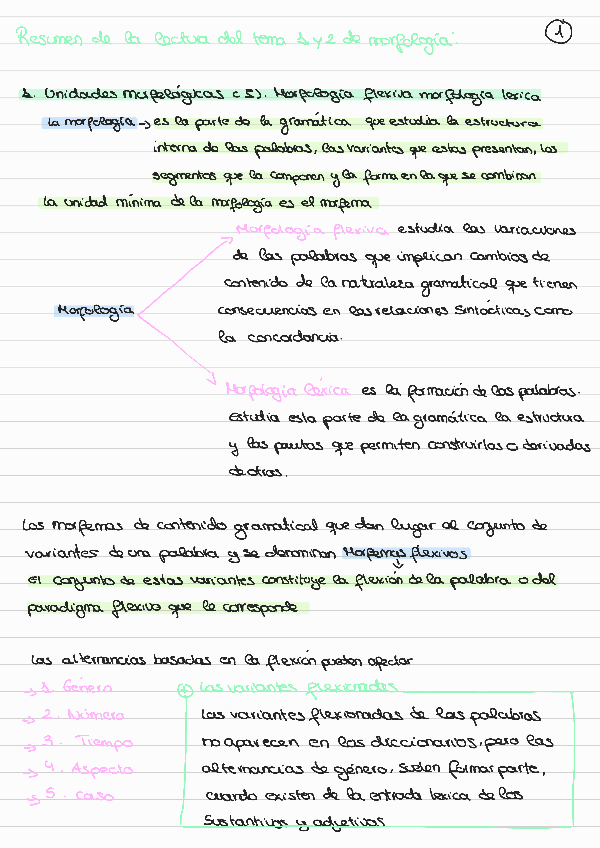 Resumen de la lectura del tema 1 y 2 de morfología:
1
1. Unidades morfológicas (5). Morfología flexiva morfología léxica
La morfología → es la parte de la gramática que estudia la estructura
interna de las palabras, las variantes que estas presentan, los
segmentos que la componen y la forma en la que se combinan
La unidad mínima de la morfología es el morfema
Morfología flexiva estudia las variaciones
de las palabras que implican cambios de
contenido de la naturaleza gramatical que tienen
Morfología
consecuencias en las relaciones sintácticas como
la concordancia.
Morfología léxica es la formación de las palabras.
Estudia esta parte de la gramática la estructura
y las pautas que permiten construirlas o derivadas
de otras.
Los morfemas de contenido gramatical que dan lugar al conjunto de
variantes de una palabra y se denominan Morfemas flexivos
El conjunto de estas variantes constituye la flexión de la palabra o del
paradigma flexivo que le corresponde
Las alternancias basadas en la flexión pueden afectar
→ 1. Género
→ 2. Número
→ 3. Tiempo
→ 4. Aspecto
→ 5. Caso
+ Las variantes flexionadas
Las variantes flexionadas de las palabras
no aparecen en los diccionarios, pero las
alternancias de género, suelen formar parte,
cuando existen de la entrada léxica de los
sustantivos y adjetivos